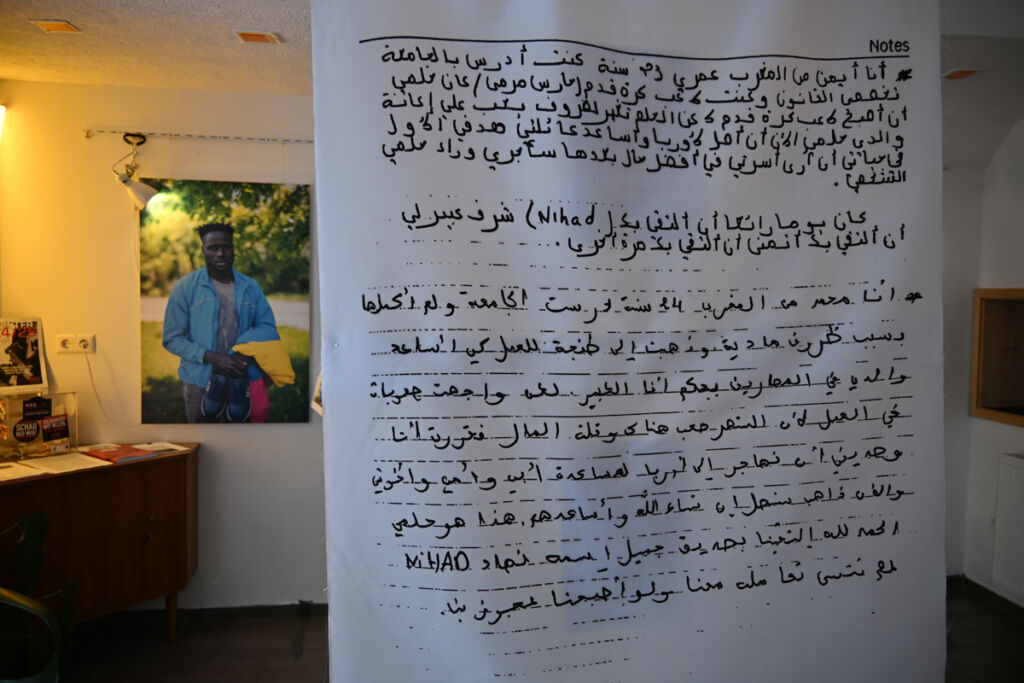 Notes
* أنا أيمن من المغرب عمري 23 سنة كنت أدرس بالجامعة
تخصص القانون وكنت لاعب كرة قدم (حارس مرمى) كان حلمي
أن أصبح لاعب كرة قدم لاكن الحلم تغير لظروف يجب علي إعانة
والدي حلمي الآن أن أصل لأوربا وأساعد عائلتي هدفي الأول
في حياتي أن أرى أسرتي في أفضل حال بعدها سأجري وراء حلمي
الشخصي.
كان يوما رائعا أن ألتقي بك (Nihad) شرف كبير لي
أن ألتقي بك أتمنى أن ألتقي بك مرة أخرى.
* أنا محمد من المغرب 24 سنة درست الجامعة ولم أكملها
بسبب ظروف مادية وذهبت إلى طنجة للعمل كي أساعد
والديا في المصاريف بحكم أنا الكبير. لكن واجهت صعوبات
في العمل لأن المنظر صعب هنا وقلة المال فقررت أنا
وصديقي أن نهاجر إلى أوربا لمساعدة أبي وأمي وإخوتي
والأن ذاهب سنصل إن شاء الله وأساعدهم. هذا هو حلمي
الحمد لله إلتقينا بصديق جميل إسمه نهاد NiHAD
لم ننسى تعامله معنا ولو أصبحنا
SCHAU